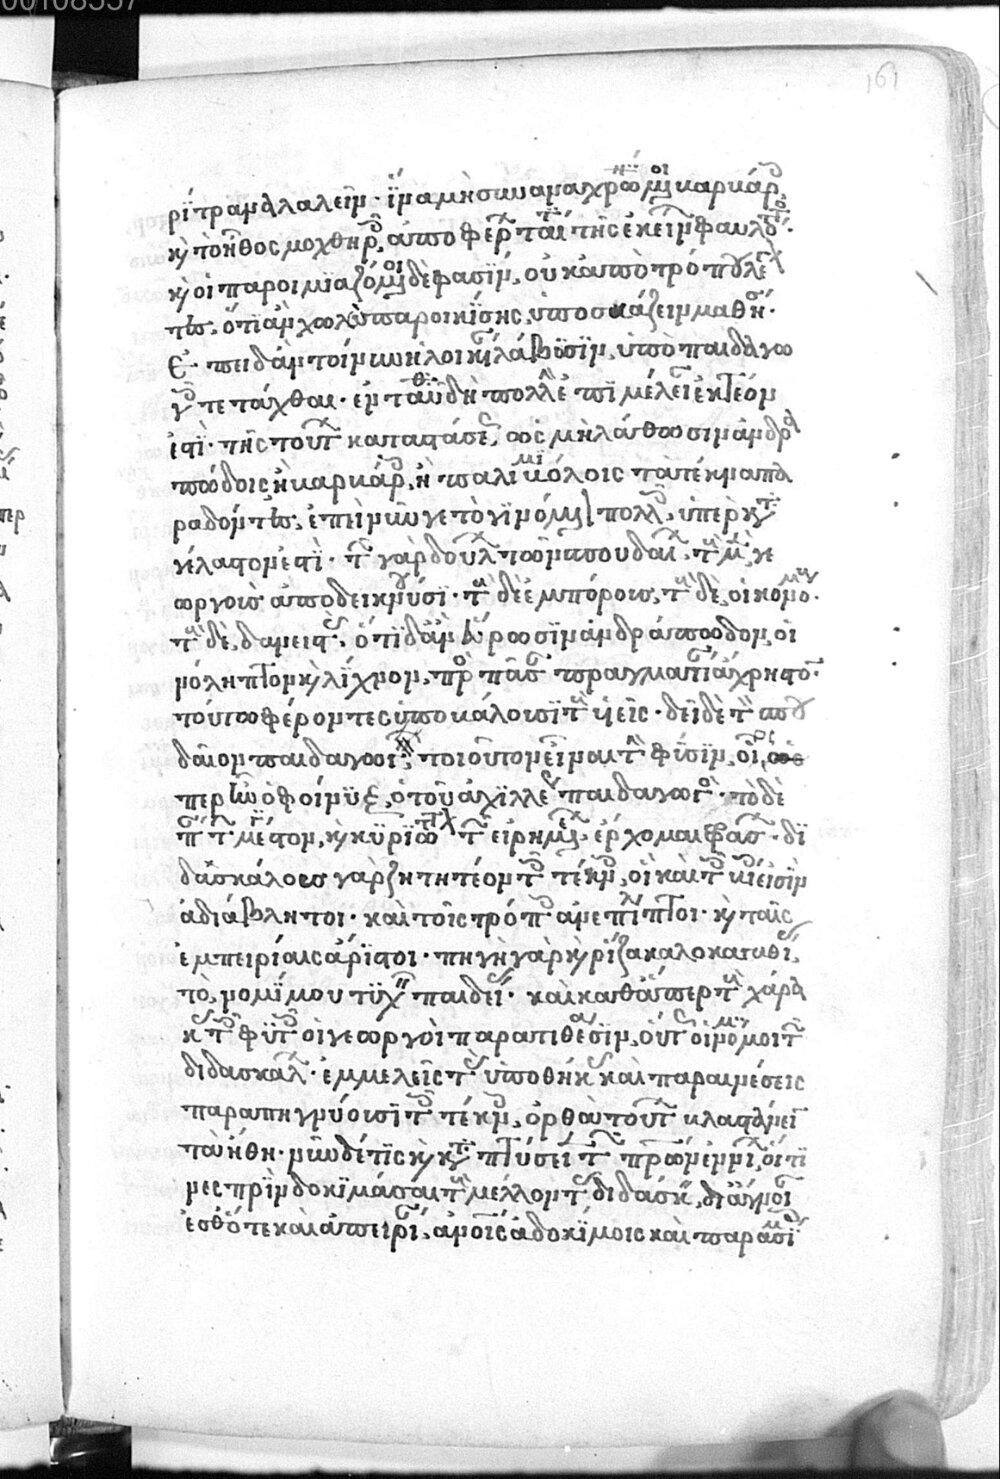 ρίτρανα λαλεῖν· ἵνα μὴ συναναχρωννύμενοι βαρβάροις
καὶ τὸ ἦθος μοχθηροῖς, ἀποφέρωνταί τι τῆς ἐκείνων φαυλότητος.
καὶ οἱ παροιμιαζόμενοι δέ φασιν, οὐκ ἀπὸ τρόπου λέγον
τες, ὅτι ἂν χωλῷ παροικήσῃς, ὑποσκάζειν μαθήσῃ.
Ἐπειδὰν τοίνυν ἡλικίαν λάβωσιν, ὑπὸ παιδαγω
γοῖς τετάχθαι· ἐνταῦθα δὴ πολλὴν ἐπιμέλειαν ἑκτέον
ἐστὶ· τῆς τούτων καταστάσεως, ὡς μὴ λάθωσιν ἀνδρα
πόδοις ἢ βαρβάροις, ἢ παλιμβόλοις τὰ τέκνα πα
ραδόντες, ἐπεὶ νῦν γε τὸ γινόμενον πολλοῖς, ὑπερκατα
γέλαστόν ἐστι· τῶν γὰρ δούλων τῶν σπουδαίων, τοὺς μὲν, γε
ωργοὺς ἀποδεικνύουσι· τοὺς δὲ ἐμπόρους, τοὺς δὲ, οἰκονόμους·
τοὺς δὲ, δανειστάς, ὅτι δ' ἂν εὕρωσιν ἀνδράποδον, οἰ
νόληπτον καὶ λίχνον, πρὸς πᾶσαν πραγματείαν ἄχρηστον·
τούτῳ φέροντες ὑποβάλουσι τοὺς υἱεῖς· δεῖ δὲ τὸν σπου
δαῖον παιδαγωγὸν, τοιοῦτον εἶναι τὴν φύσιν, οἷος
περ ἦν ὁ φοίνιξ, ὁ τοῦ ἀχιλλέως παιδαγωγός· τὸ δὲ
πάντων μέγιστον, καὶ κυριώτατον τῶν εἰρημένων, ἔρχομαι φράσων· δι
δασκάλους γὰρ ζητητέον τοῖς τέκνοις, οἳ καὶ τοῖς βίοις εἰσὶν
ἀδιάβλητοι· καὶ τοῖς τρόποις ἀνεπίληπτοι· καὶ ταῖς
ἐμπειρίαις ἄριστοι· πηγὴ γὰρ καὶ ῥίζα καλοκαγαθίας,
τὸ, νομίμου τυχεῖν παιδείας· καὶ καθάπερ τοὺς χάρα
κας τοῖς φυτοῖς οἱ γεωργοὶ παρατιθέασιν, οὕτως οἱ νόμιμοι τῶν
διδασκάλων· ἐμμελεῖς τὰς ὑποθήκας καὶ παραινέσεις
παραπηγνύουσι τοῖς τέκνοις, ὀρθὰ τούτων βλαστάνειν
τὰ ἤθη· νῦν δέ τις καὶ καταπτύσειε τῶν πατέρων ἐνίων, οἵτι
νες πρὶν δοκιμάσαι τοὺς μέλλοντας διδάσκειν, δι' ἄγνοιαν
ἔσθ' ὅτε καὶ ἀπειρίαν, ἀνοις ἀδοκίμοις καὶ παρασήμοις